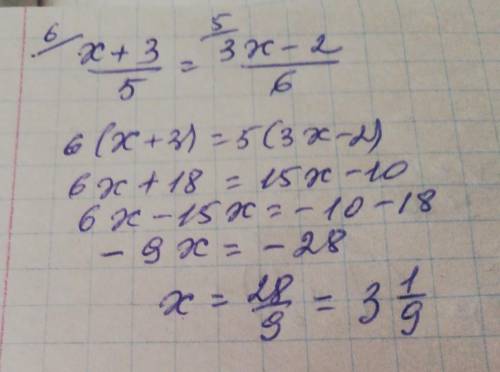 6/ (x + 3)/5 = 5/ (3x - 2)/6
6(x+3) = 5(3x-2)
6x + 18 = 15x - 10
6x - 15x = -10 - 18
-9x = -28
x = 28/9 = 3 1/9